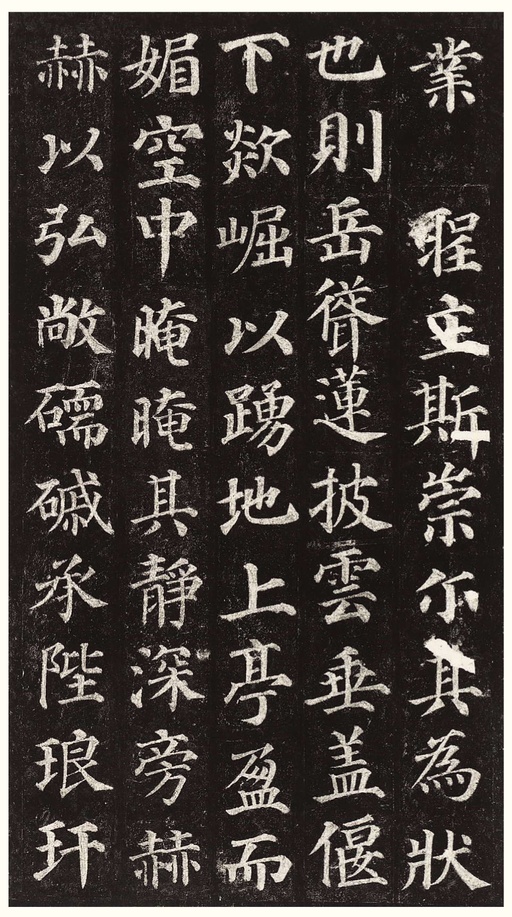 業　聖主斯崇尒其為狀
也則岳聳蓮披雲垂盖偃
下欻崛以踴地上亭盈而
媚空中晻晻其靜深旁赫
赫以弘敞礝磩承陛琅玕